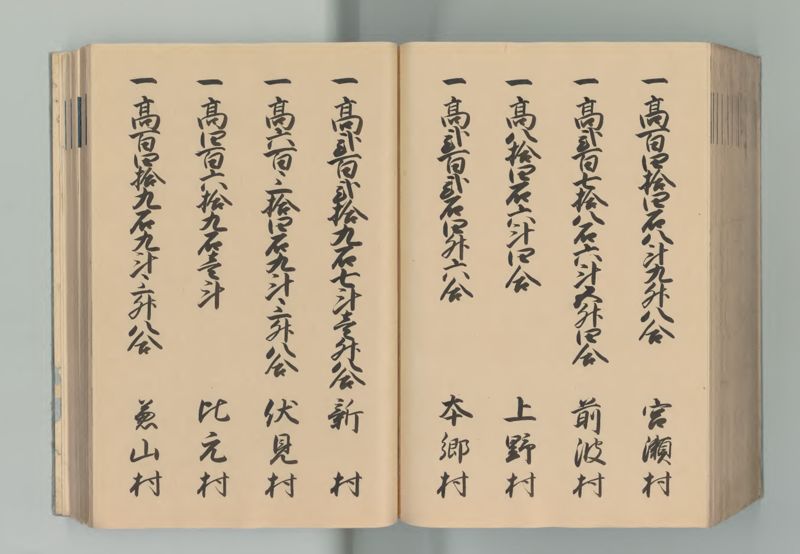 一高百四拾四石八斗九升八合 宮瀬村
一高弐百七拾八石六斗五升四合 前波村
一高八拾四石六斗四合 上野村
一高弐百弐石四升六合 本郷村
一高弐百弐拾九石七斗壱升八合 新村
一高六百三拾四石九斗三升八合 伏見村
一高四百六拾九石壱斗 比元村
一高百四拾九石九斗三升八合 兼山村